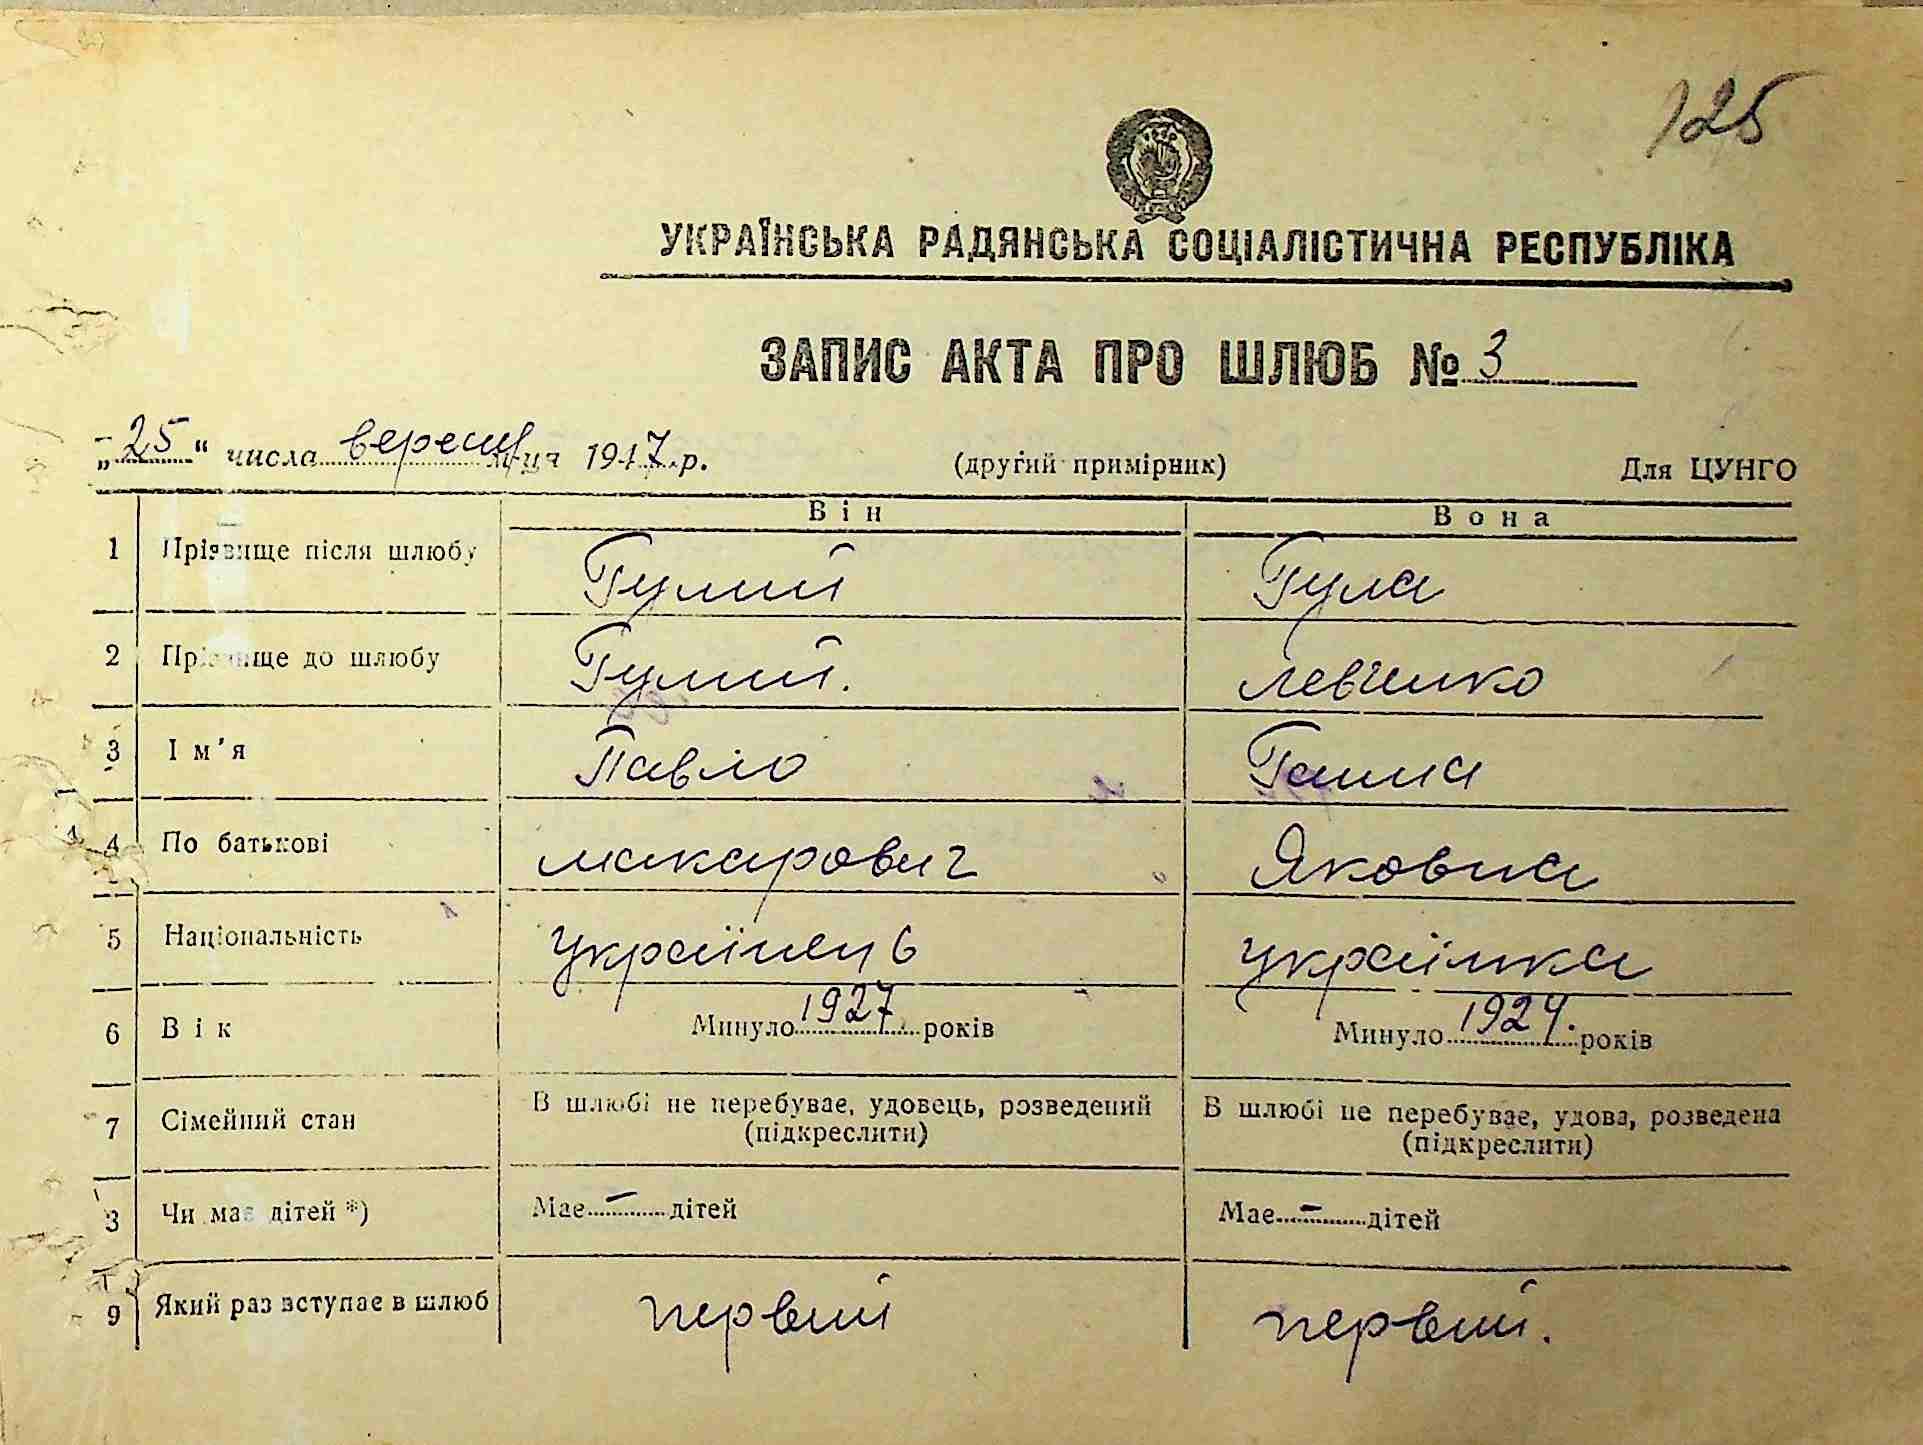 125
УКРАЇНСЬКА РАДЯНСЬКА СОЦІАЛІСТИЧНА РЕСПУБЛІКА
ЗАПИС АКТА ПРО ШЛЮБ № 3
„25“ числа вересня м-ця 1947 р. (другий примірник) Для ЦУНГО
Він Вона
1 Прізвище після шлюбу Гулий Гула
2 Прізвище до шлюбу Гулий. Левченко
3 Ім'я Павло Ганна
4 По батькові Макарович Яковна
5 Національність українець українка
6 Вік Минуло 1927 років Минуло 1924. років
7 Сімейний стан В шлюбі не перебуває, удовець, розведений (підкреслити) В шлюбі не перебуває, удова, розведена (підкреслити)
8 Чи має дітей *) Має – дітей Має – дітей
9 Який раз вступає в шлюб первий первий.